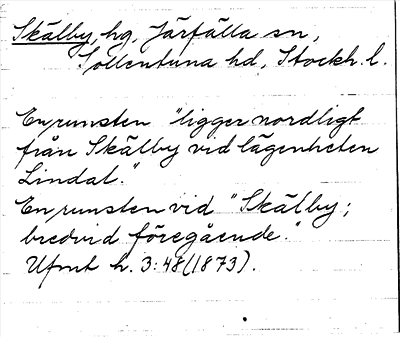 Skälby, hg, Järfälla sn,
Sollentuna hd, Stockh. l.
En runsten "ligger nordligt
från Skälby vid lägenheten
Lindal."
En runsten vid "Skälby;
bredvid föregående."
Ufmt h. 3:48 (1873).